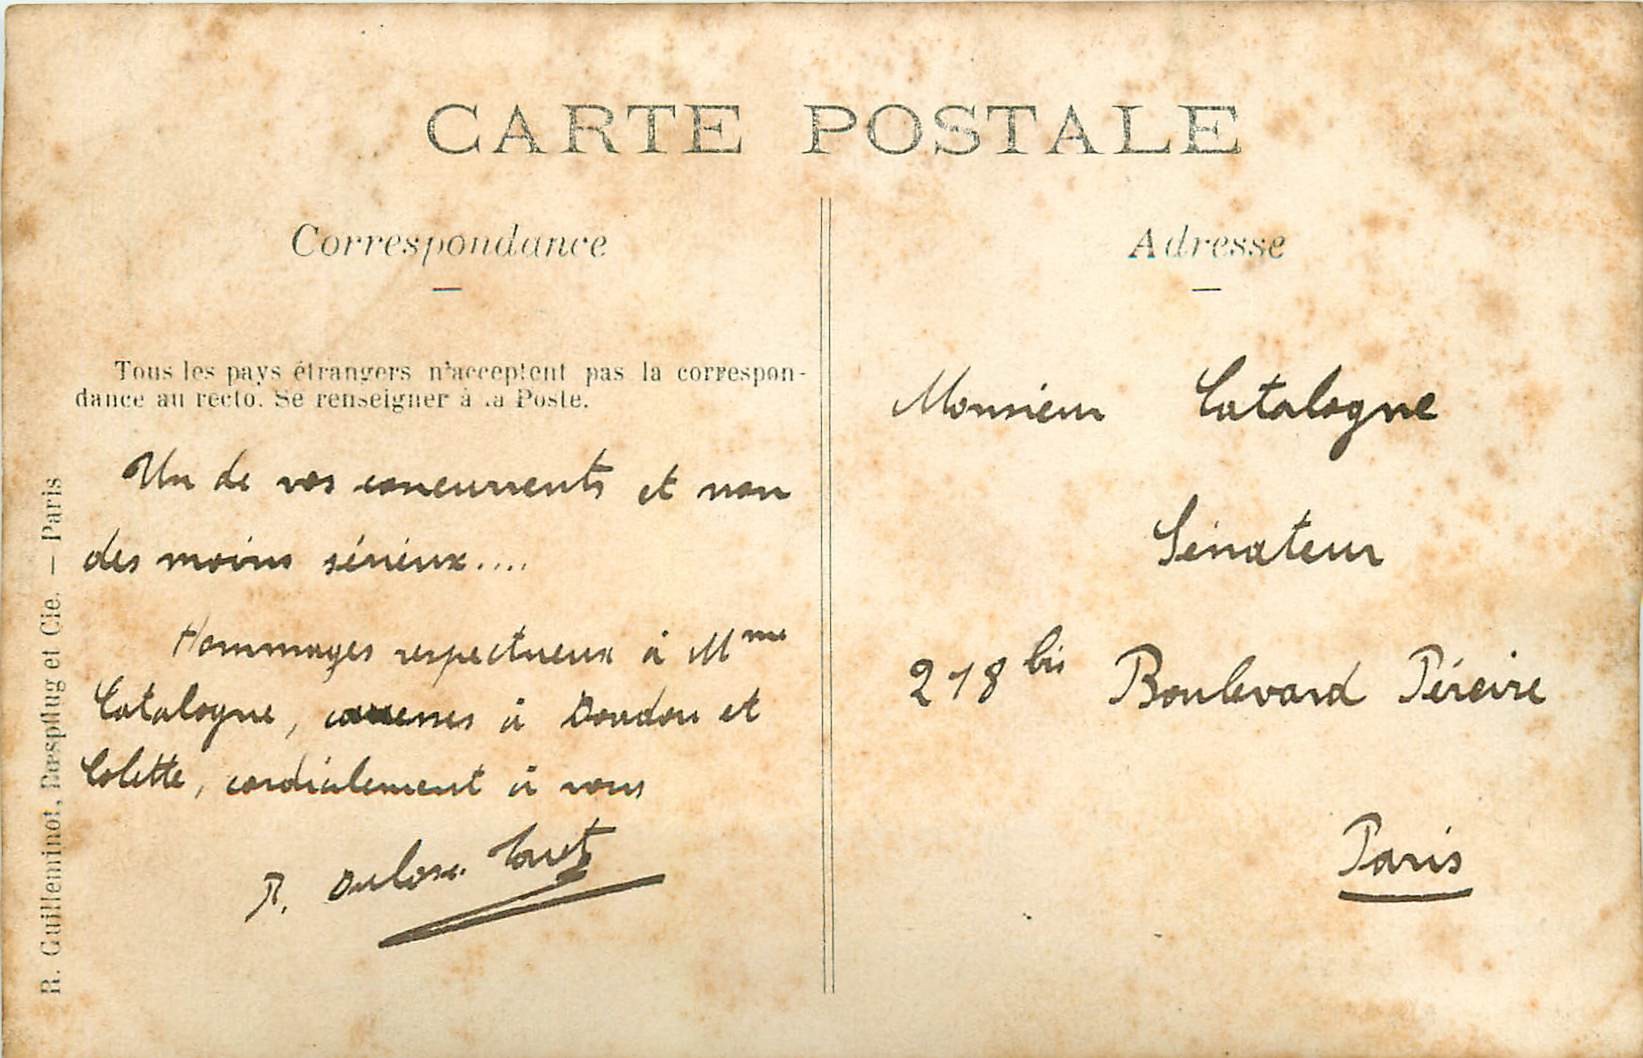 CARTE POSTALE
Correspondance
Tous les pays étrangers n'acceptent pas la correspon-
dance au recto. Se renseigner à la Poste.
Un de vos concurrents et non
des moins sérieux....
Hommages respectueux à Mme
Catalogne, caresses à Doudou et
Colette, cordialement à vous
R.
R. Guilleminot, Bœspflug et Cie. — Paris
Adresse
Monsieur Catalogne
Sénateur
218 bis Boulevard Péreire
Paris